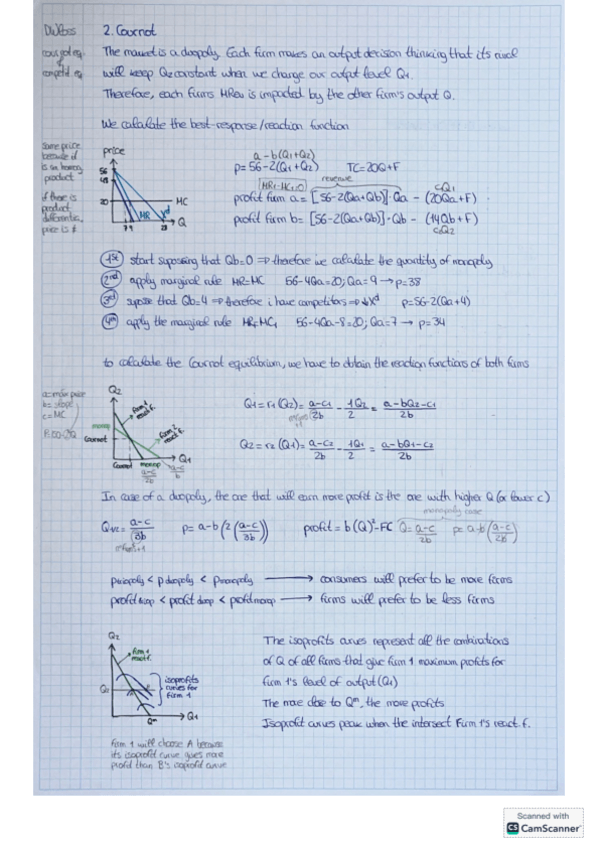 2. Cournot
The market is a duopoly. Each firm makes an output decision thinking that its rival
will keep Q2 constant when we charge our output level Q1.
Therefore, each firms is impacted by the other firm's output Q.
We calculate the best-response/reaction function
same price
because it
is an homog
product
if there is
product
differentia,
price is ≠
price
56
48
20
MC
MR
Xd
Q
7 9
28
a-b(Q1+Q2)
p=56-2(Q1+Q2) TC=20Q+F
revenue
cQ1
profit firm a=[56-2(Qa+Qb)]·Qa - (20Qa+F)
profit firm b=[56-2(Qa+Qb)]·Qb - (14Qb+F)
cQ2
1st start suposing that Qb=0 ⇒ therefore we calculate the quantity of monopoly
2nd apply marginal rule MR=MC 56-4Qa=20; Qa=9 → p=38
3rd supose that Qb=4 ⇒ therefore i have competitors ⇒ ↓Xd p=56-2(Qa+4)
4th apply the marginal rule 56-4Qa-8=20; Qa=7 → p=34
to calculate the Cournot equilibrium, we have to obtain the reaction functions of both firms
a=max price
b=slope
c=MC
Q2
firm 1
react f.
monop
Cournot
firm 2
react f.
Q1
Cournot monop
a-c/2b
a-c/b
Q1=r1(Q2)= a-c1/2b - 1Q2/2 = a-bQ2-c1/2b
Q2=r2(Q1)= a-c2/2b - 1Q1/2 = a-bQ1-c2/2b
In case of a duopoly, the one that will earn more profit is the one with higher Q (or lower c)
monopoly case
Q1/2= a-c/3b p=a-b(2(a-c/3b)) profit=b(Q)²-FC Q=a-c/2b p=a-b(a-c/2b)
nºfirms+1
p triopoly < p duopoly < p monopoly → consumers will prefer to be more firms
profit triop < profit duop < profit monop → firms will prefer to be less firms
Q2
firm 1
react f.
isoprofits
curves for
firm 1
Q2
Qm
Q1
The isoprofits curves represent all the combinations
of Q of all firms that give firm 1 maximum profits for
firm 1's level of output (Q1)
The more close to Qm, the more profits
Isoprofit curves peak when the intersect Firm 1's react. f.
Firm 1 will choose A because
its isoprofit curve gives more
profit than B's isoprofit curve
Scanned with
CS CamScanner